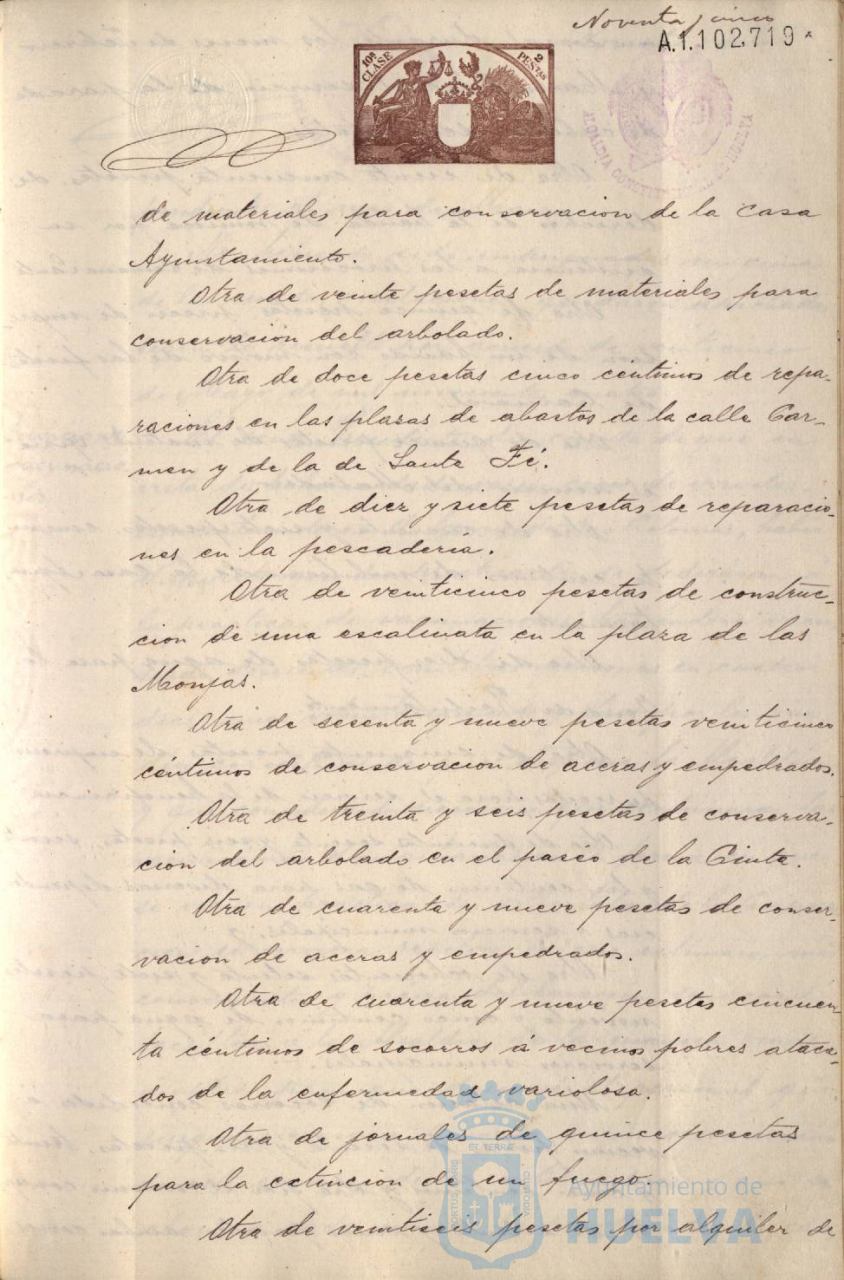 Noventa y cinco
A.1.102,719
10ª CLASE
2 PESETAS
ALCALDIA CONSTITUCIONAL DE HUELVA
de materiales para conservacion de la Casa
Ayuntamiento.
Otra de veinte pesetas de materiales para
conservación del arbolado.
Otra de doce pesetas cinco céntimos de repa-
raciones en las plazas de abastos de la calle Car-
men y de la de Santa Fé.
Otra de diez y siete pesetas de reparacio-
nes en la pescadería.
Otra de veinticinco pesetas de construc-
cion de una escalinata en la plaza de las
Monjas.
Otra de sesenta y nueve pesetas veinticinco
céntimos de conservacion de aceras y empedrados.
Otra de treinta y seis pesetas de conserva-
cion del arbolado en el paseo de la Cinta.
Otra de cuarenta y nueve pesetas de conser-
vacion de aceras y empedrados.
Otra de cuarenta y nueve pesetas cincuen-
ta céntimos de socorros á vecinos pobres ataca-
dos de la enfermedad variolosa.
Otra de jornales de quince pesetas
para la extincion de un fuego.
Otra de veintiseis pesetas por alquiler de
Ayuntamiento de
HUELVA